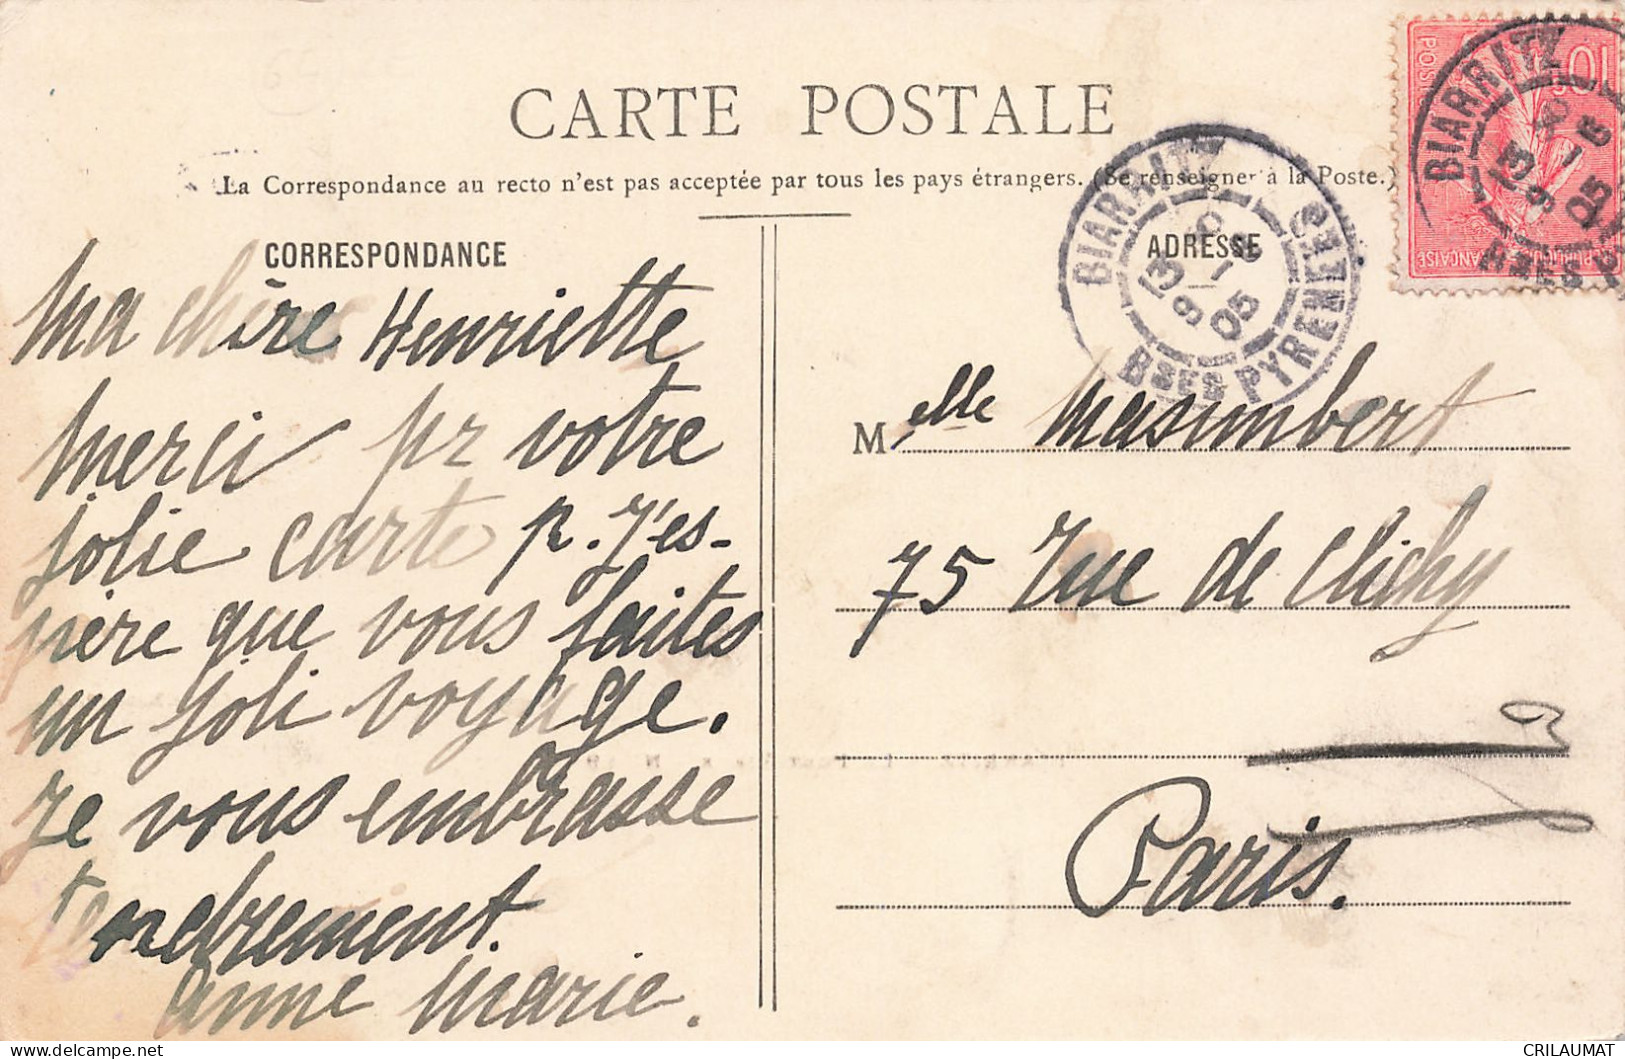 CARTE POSTALE
La Correspondance au recto n'est pas acceptée par tous les pays étrangers. (Se renseigner à la Poste.)
CORRESPONDANCE
Ma chère Henriette
Merci pr votre
jolie carte p. J'es-
père que vous faites
un joli voyage.
Je vous embrasse
tendrement.
Anne Marie.
ADRESSE
Melle Masimbert
75 Rue de Clichy
Paris.
BIARRITZ
13
9 -6
05
BSES PYRENEES
10
POSTES
REPUBLIQUE FRANÇAISE
BIARRITZ
13
9 -6
05
BSES P
CRILAUMAT